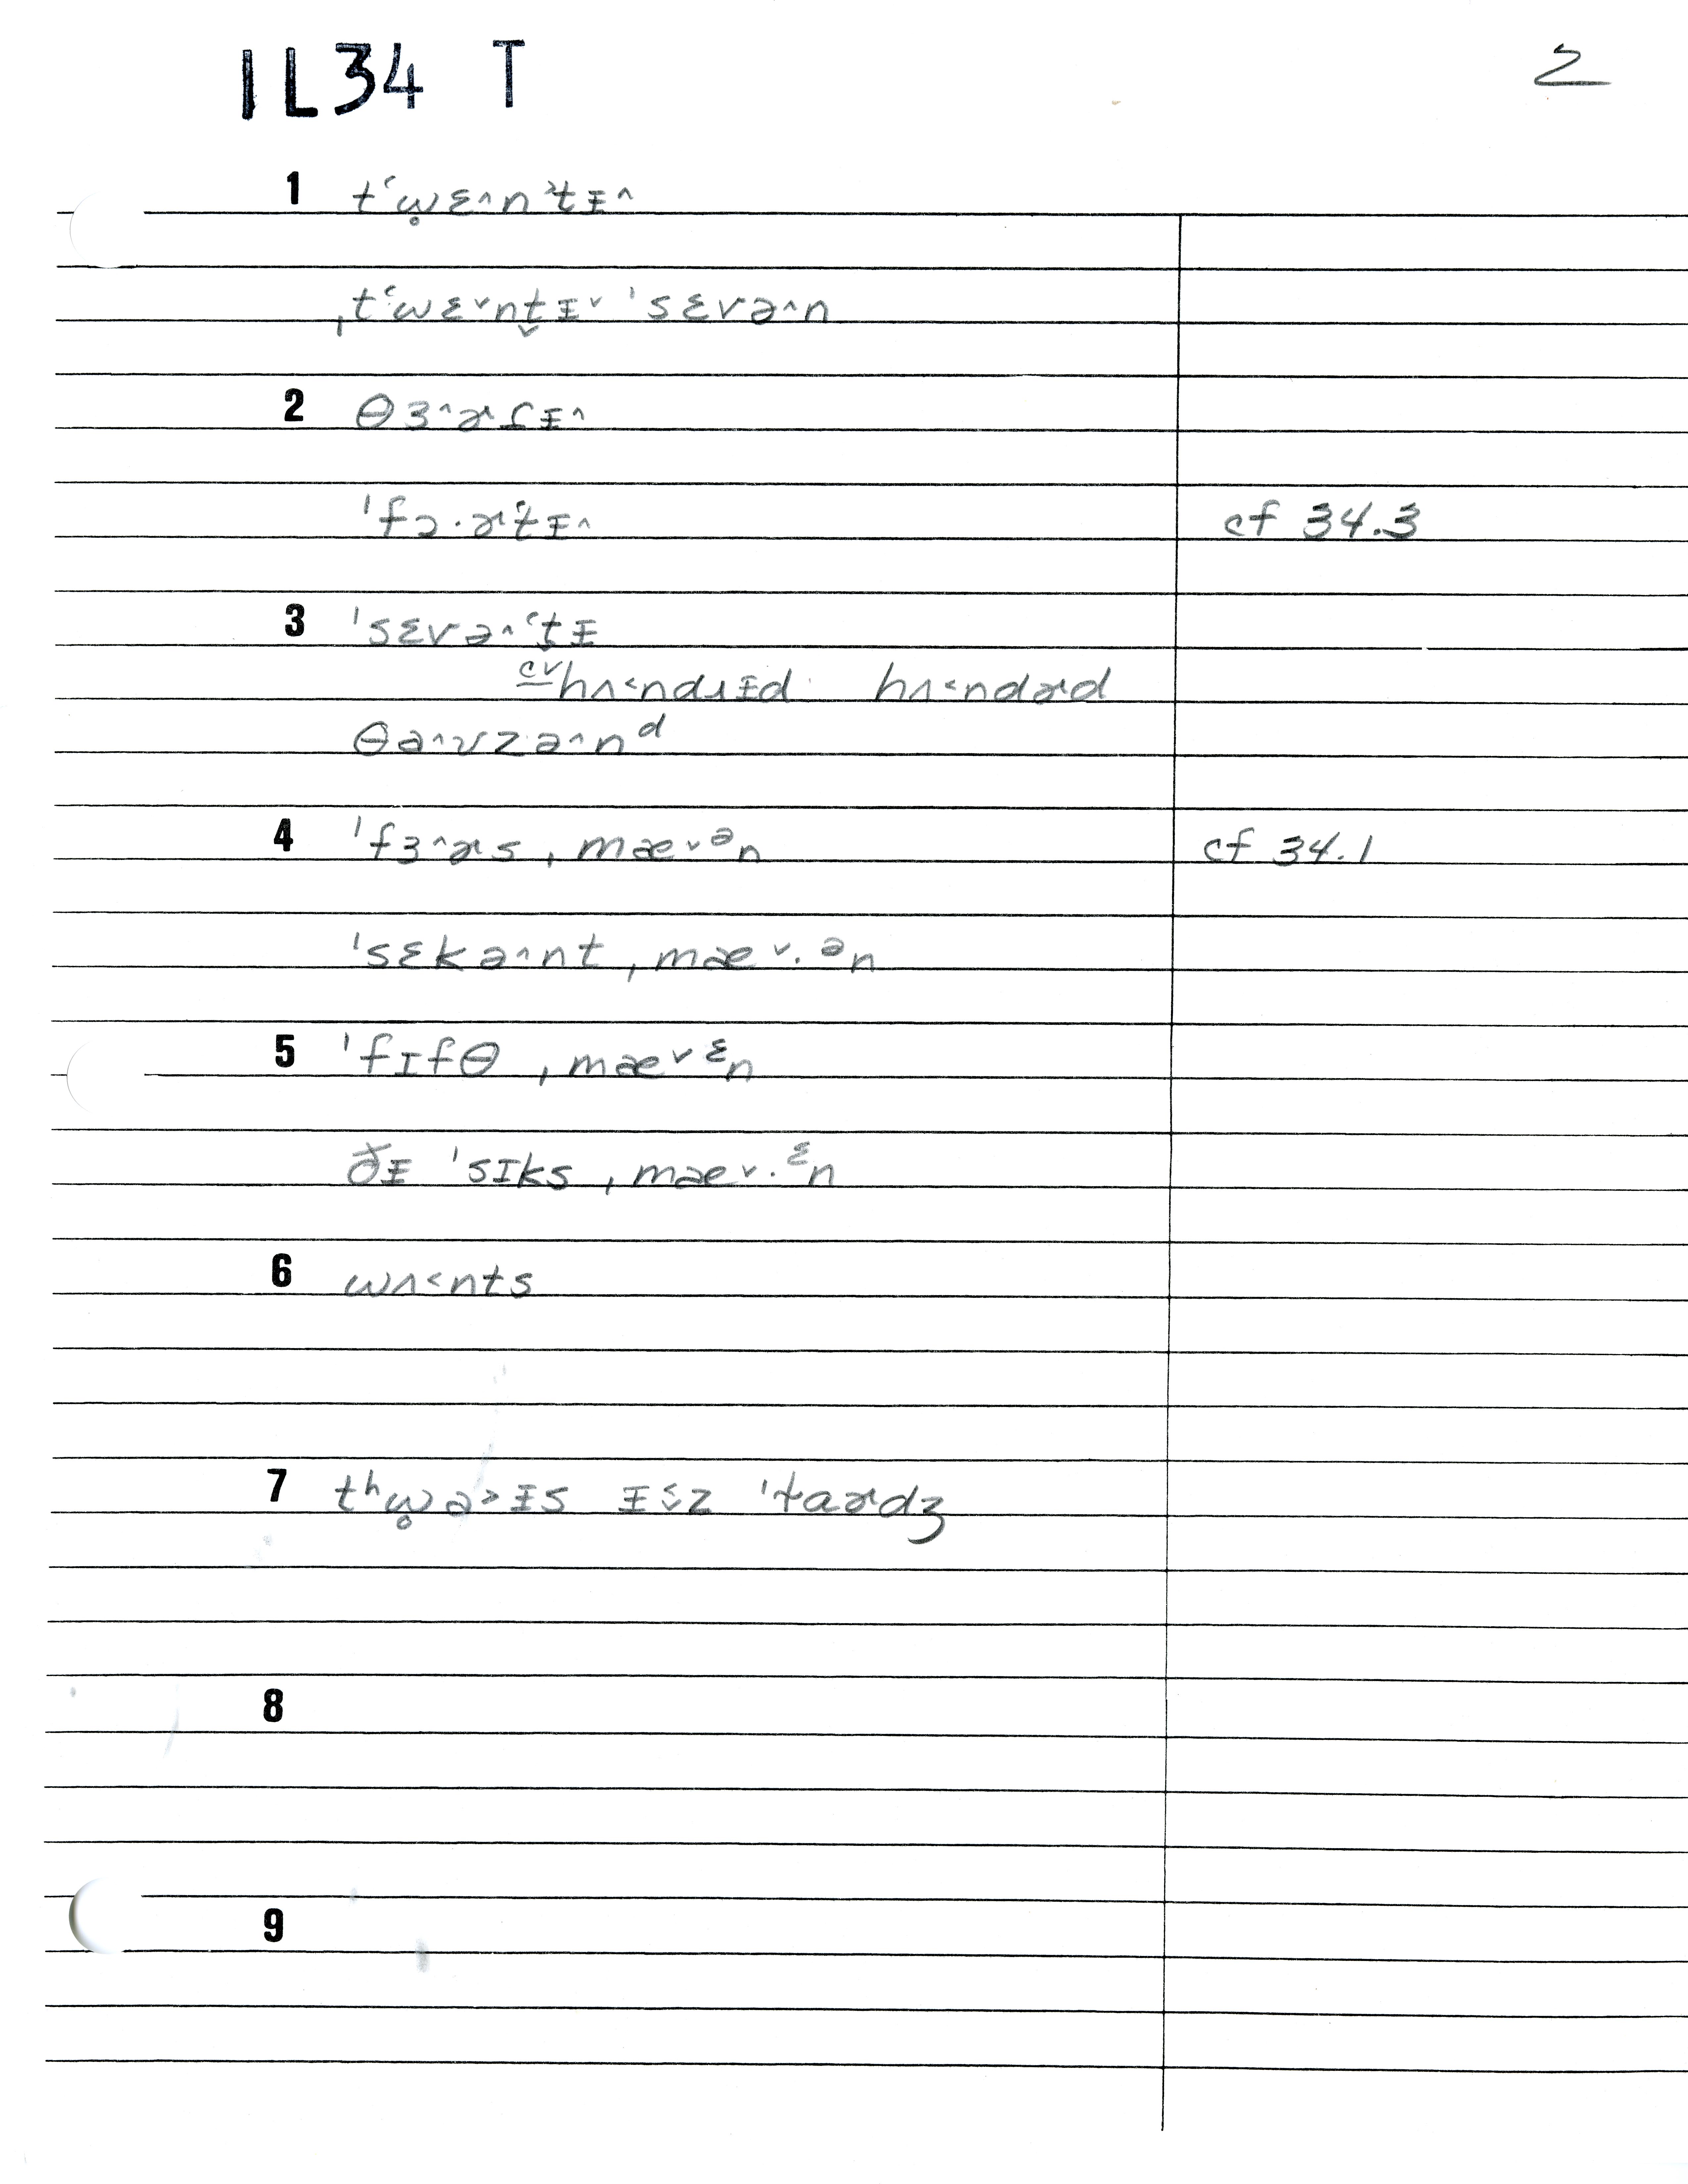 1L34 T 2
1 tʻw̥ɛ^n ʻtɪ̵^
ˌtʻwɛˇnt̬ɪ̵ˇ ˈsɛvə^n
2 θɜ^ɚɾɪ̵^
ˈfɔ·ɚt̬ʻɪ̵^ cf 34.3
3 ˈsɛvə^ʻt̬ɪ̵
cv hʌ˂ndɹɪ̵d hʌ˂ndɚd
θa^ʊzə^nᵈ
4 ˈfɜ^ɚs ˌmæˇᵊn cf 34.1
ˈsɛkə^nt ˌmæˇ·ᵊn
5 ˈfɪfθ ˌmæˇᵋn
ðɪ̵ ˈsɪks ˌmæˇ·ᵋn
6 wʌ˂nts
7 tʰw̥a˃ɪ̵s ɪ̵˂ˇz ˈtaɚdʒ
8
9